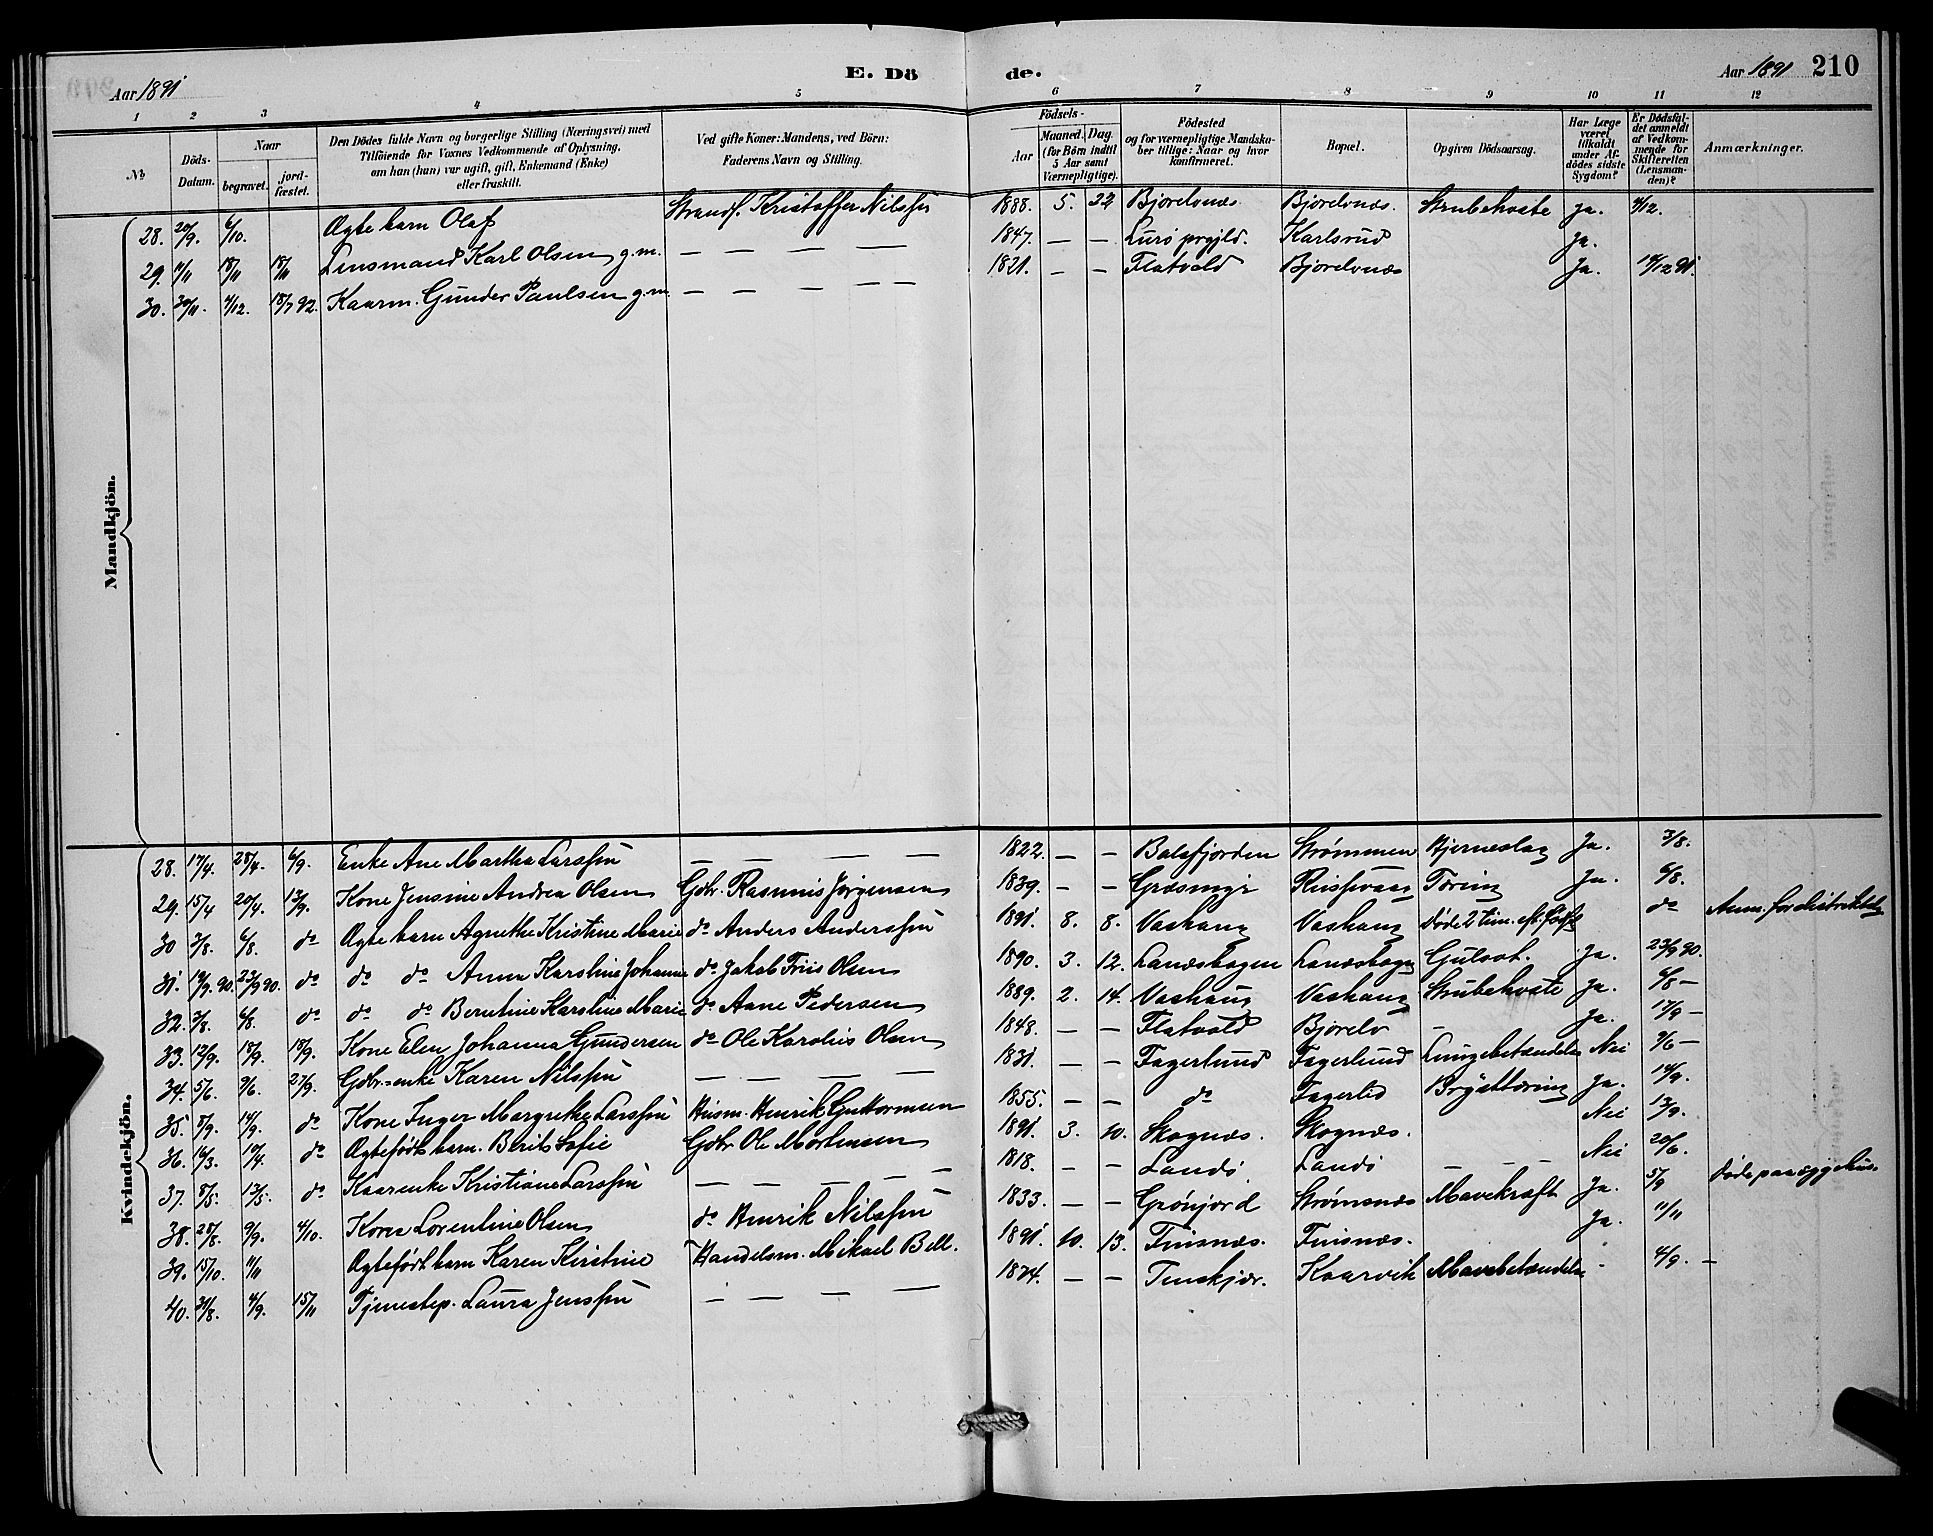 Aar 1891
E. Dö
de.
Aar 1891 210
1 2 3 4 5 6 7 8 9 10 11 12
№
Döds-Datum.
Naar
begravet.
jordfæstet.
Den Dödes fulde Navn og borgerlige Stilling (Næringsvei) med
Tilföiende for Voxnes Vedkommende af Oplysning,
om han (hun) var ugift, gift, Enkemand (Enke)
eller fraskilt.
Ved gifte Koner: Mandens, ved Börn:
Faderens Navn og Stilling.
Födsels-
Aar
Maaned. Dag.
(for Börn indtil
5 Aar samt
Værnepligtige).
Födested
og for værnepligtige Mandskaber tillige: Naar og hvor
konfirmeret.
Bopæl.
Opgiven Dödsaarsag.
Har Læge
været
tilkaldt
under Afdödes sidste
Sygdom?
Er Dödsfaldet anmeldt
af Vedkommende for
Skifteretten
(Lensmanden)?
Anmærkninger.
Mandkjön.
28. 20/9. 6/10. Ægte barn Olaf Strands. Kristoffer Nilssen 1888. 5. 22 Bjorelvnes. Bjorelvnes. Strubehoste ja. 4/12.
29. 11/11 18/11 18/11 Lensmand Karl Olsen g.m. — — — — 1847. — — Lurö prgjld. Karlsrud ja.
30. 30/11. 4/12. 18/7 92. Kaarm. Gunder Paulsen g.m. — — — — 1821. — — Flatvold Bjorelvnes Ja. 14/12 91.
Kvindekjön.
28. 17/4. 28/4. 6/9. Enke Ane Martha Larssen — — — — 1822. — — Balsfjorden Strömmen Hjerneslag Ja. 3/8.
29. 15/4 20/4. 13/9. Kone Jensine Andrea Olsen Gdbr. Rasmus Jörgensen 1839. — — Græsmyr Tæring Ja. 6/8.
30 3/8. 6/8. do Ægte barn Agnethe Kristine Marie do Anders Anderssen 1891. 8. 8. Vashaug Vashaug döde 2 tim. eft. föds. do Anm. for distriktslæg
31. 19/9. 90. 23/9 90. do do do Anna Karoline Johanne do Jakob Friis Olsen 1890. 3. 12. Lanesbogen Lanesbogen Gulsot. Ja. 23/9 90.
32. 3/8. 6/8. do do do Berntine Karoline Marie do Aane Pedersen 1889. 2. 14. Vashaug Vashaug Strubehoste ja. 6/8 —
33. 12/9. 18/9. 18/9. Kone Elen Johanna Gundersen do Ole Karolius Olsen 1848. — — Flatvold Bjorelv — ja. 17/9 —
34. 5/6. 9/6. 27/9. Gdbr.-enke Karen Nilssen — — — — 1831. — — Fagerlund Fagerlund Lungebetændelse Nei 9/6 —
35. 8/9. 14/9. do Kone Inger Margrethe Larssen Husm. Henrik Guttormsen 1855. — — do Fagerlid Brysttæring Ja. 14/9.
36. 16/3. 10/4. do Ægtefödt barn. Berit Sofie Gdbr Ole Mortensen 1891. 3. 10. Skognes. Skognes. Nei 13/9.
37. 8/5. 13/5. do Kaarenke Kristiane Larssen — — — — — 1818. — — Landö Landö — — — Nei 20/6.
38. 28/8. 9/9. 4/10. Kone Lorentine Olsen do Henrik Nilssen 1833. — — Grönjord Strömsnes Mavekræft Ja. 5/9 Döde paa sygehus.
39. 15/10. 11/11 Ægtefödt barn Karen Kirstine Handelsm. Mikael Bell. 1891. 10. 13. Finsnes. Finsnes. Ja. 11/11
40. 31/8. 4/9. 15/11 Tjenestep. Laura Jenssen — — — — 1874. — — Tenskjær. Kaarvik Mavebetændelse - 4/9. —